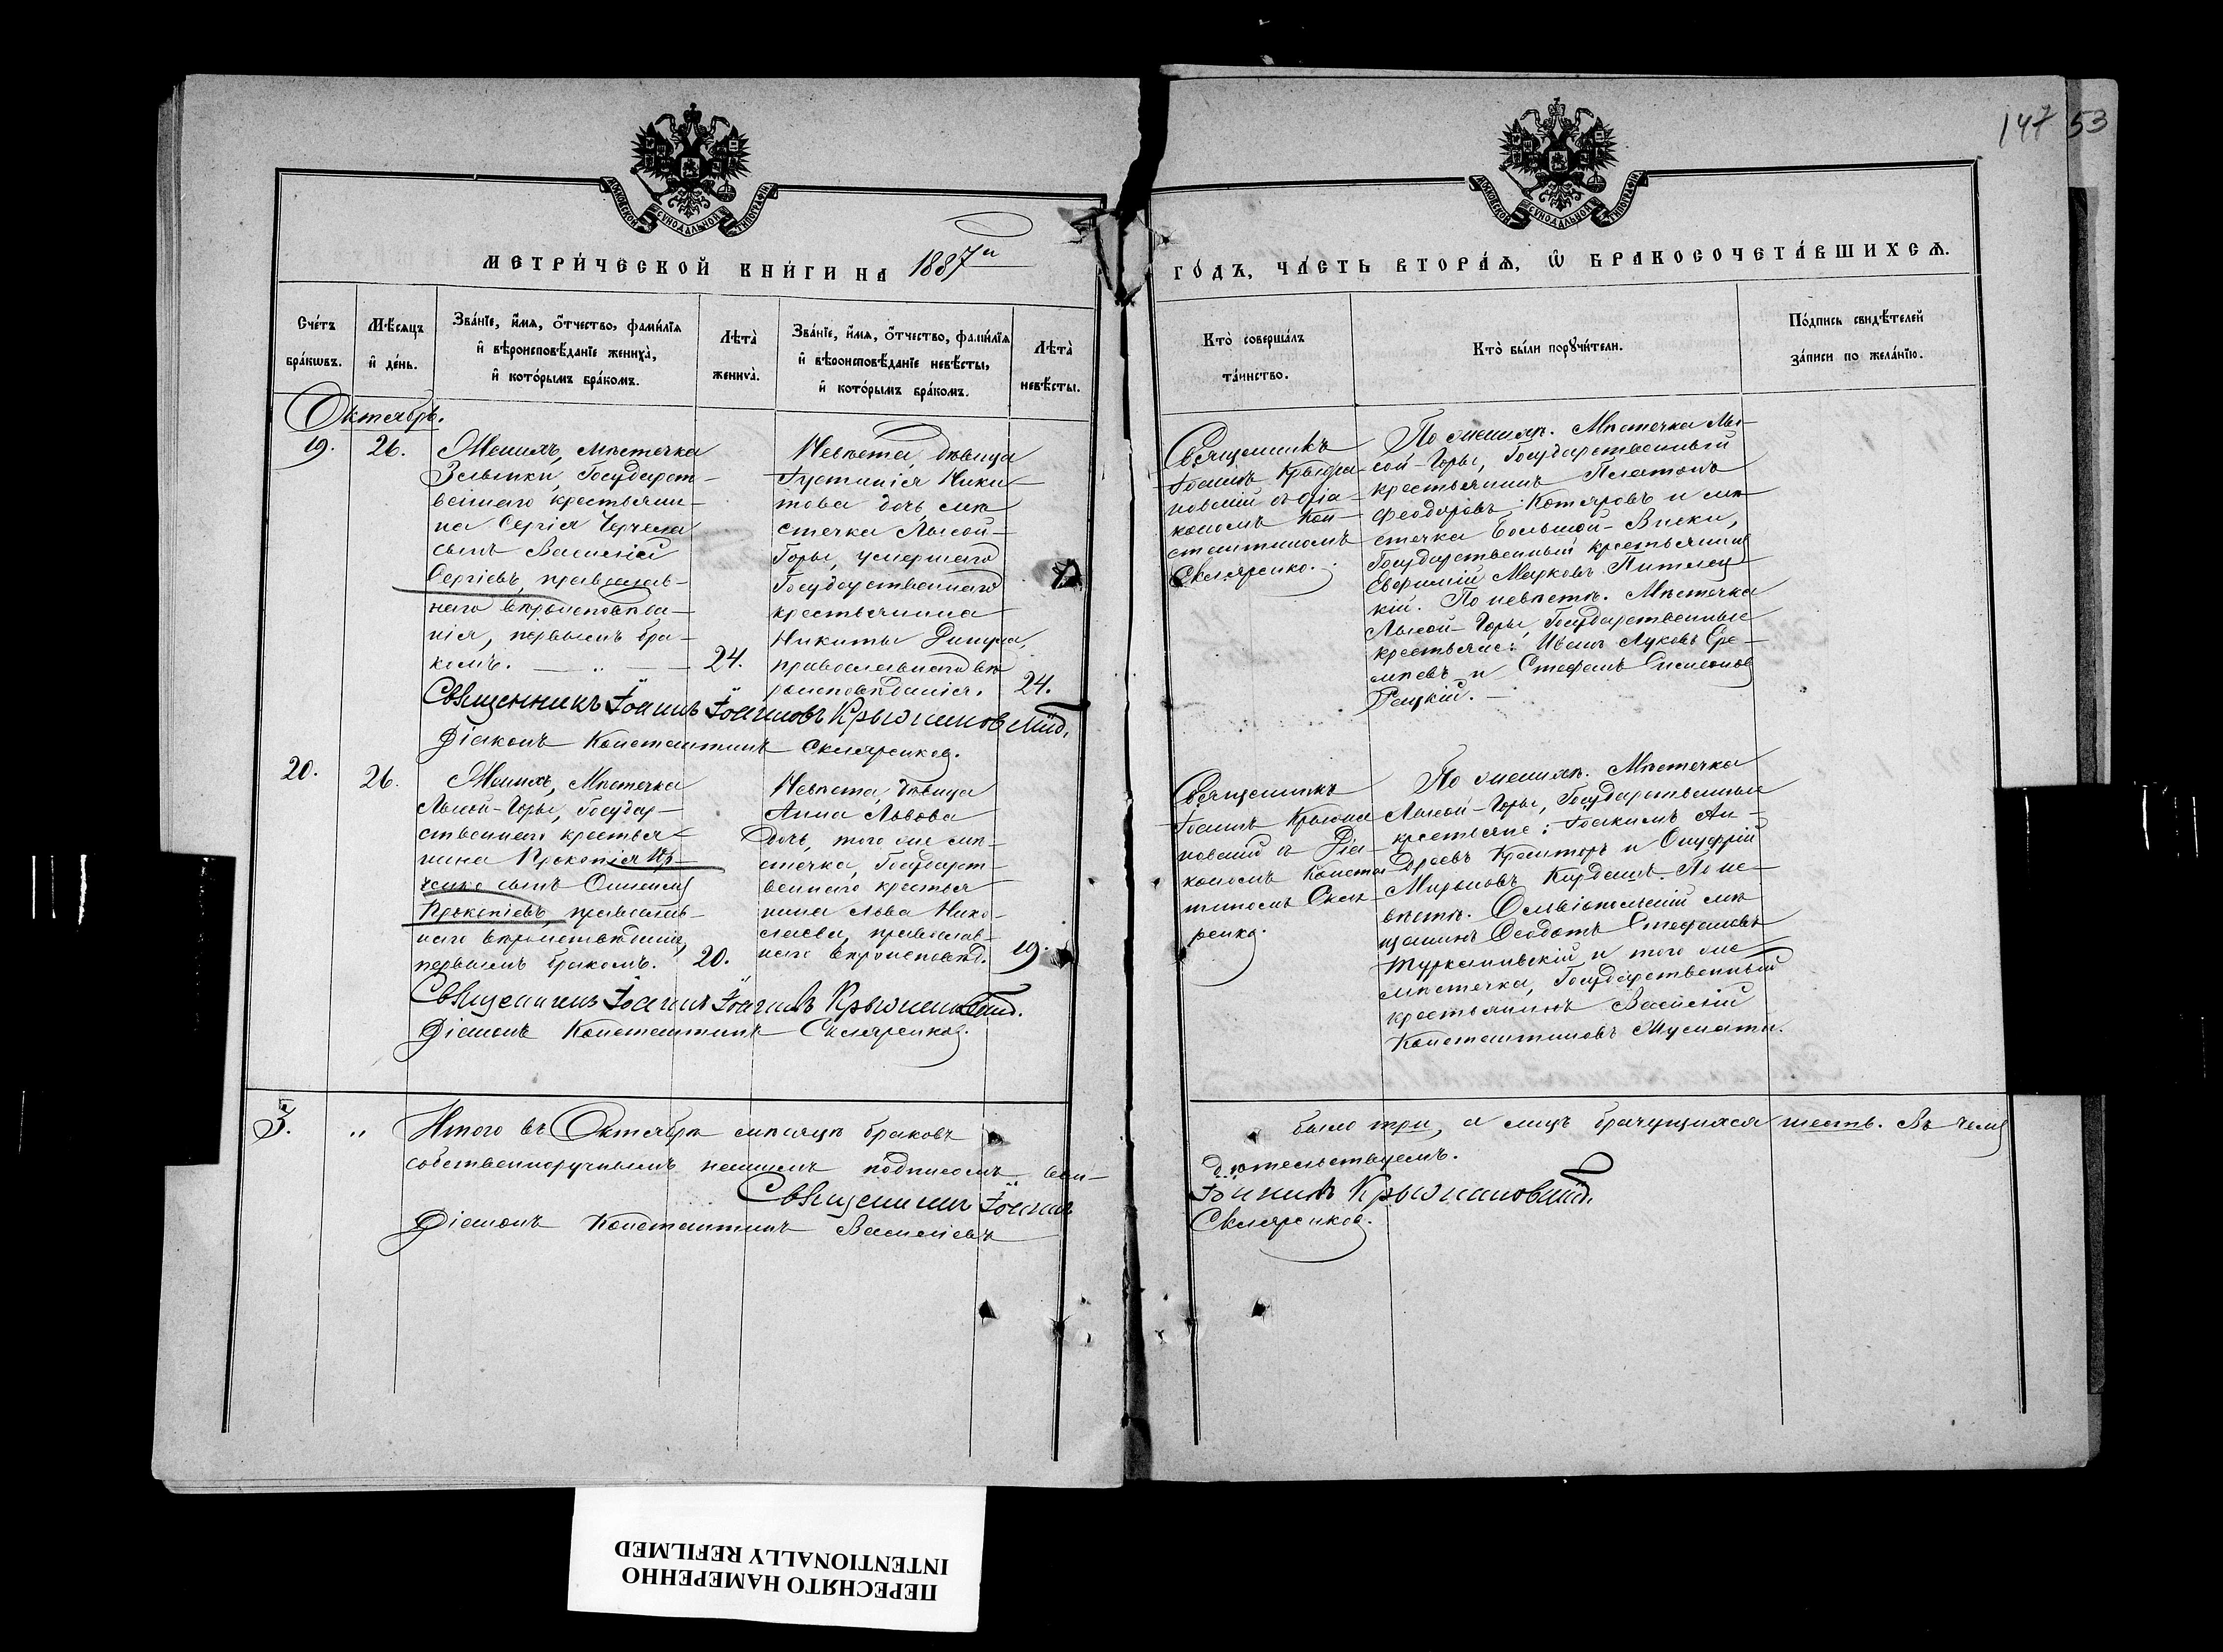 147 53
МОСКОВСКОЙ СѴНОДАЛЬНОЙ ТИПОГРАФІИ
МОСКОВСКОЙ СѴНОДАЛЬНОЙ ТИПОГРАФІИ
МЕТРИ́ЧЕСКОЙ КНИ́ГИ НА 1887й
ГО́ДЪ, ЧА́СТЬ ВТОРА́Ѧ, Ѿ БРАКОСОЧЕТА́ВШИХСѦ.
Сче́тъ бра́кѡвъ.
Мѣ́сяцъ и҆ де́нь.
Зва́нїе, и҆́мѧ, ѻ҆́тчество, фами́лїѧ
и҆ вѣроисповѣ́данїе жениха̀,
и҆ кото́рымъ бра́комъ.
Лѣта̀ жениха̀.
Зва́нїе, и҆́мѧ, ѻ҆́тчество, фами́лїѧ
и҆ вѣроисповѣ́данїе невѣ́сты,
и҆ кото́рымъ бра́комъ.
Лѣта̀ невѣ́сты.
Кто̀ соверша́лъ
та́инство.
Кто̀ бы́ли порꙋчи́тели.
По́дпись свидѣ́телей
за́писи по жела́нїю.
Октябрь.
19.
26.
Женихъ, мѣстечка
Государст-
веннаго крестьяни-
на Сергія
сынъ Василій
Сергіевъ, православ-
наго вѣроисповѣда-
нія, первымъ бра-
комъ. — „ —
24.
Невѣста, дѣвица
Іустинія Ники-
това дочь, мѣ-
стечка Лысой-
Горы, умершаго
Государственнаго
крестьянина
Никиты
православнаго вѣ-
роисповѣданія.
24.
Священникъ
Іоаннъ Крыжа-
новскій съ діа-
кономъ Кон-
стантиномъ
Скляренко.
По женихѣ. Мѣстечка Лы-
сой-Горы, Государственный
крестьянинъ Платонъ
Феодоровъ Котляровъ и мѣ-
стечка Большой-Виски,
Государственный крестьянинъ
Евфимій Марковъ
кій. По невѣстѣ. Мѣстечка
Лысой-Горы, Государственные
крестьяне: Иванъ Луковъ Ере-
мѣевъ и Стефанъ Симеоновъ
Рецкій. —
Священникъ Іоаннъ Іоанновъ Крыжановскій.
Діаконъ Константинъ Скляренковъ.
20.
26.
Женихъ, Мѣстечка
Лысой-Горы, Государ-
ственнаго крестья-
нина Прокопія
сынъ
Прокопіевъ, православ-
наго вѣроисповѣданія,
первымъ бракомъ.
20.
Невѣста, дѣвица
Анна Львова
дочь, того же мѣ-
стечка, Государст-
веннаго крестья-
нина Льва Нико-
лаева, православ-
наго вѣроисповѣд.
19.
Священникъ
Іоаннъ Крыжа-
новскій съ Діа-
кономъ Констан-
тиномъ Скля-
ренко.
По женихѣ. Мѣстечка
Лысой-Горы, Государственные
крестьяне: Іоакимъ Ан-
дреевъ и Онуфрій
Мироновъ Кардашъ. По не-
вѣстѣ. Ольвіопольскій мѣ-
щанинъ Феодотъ Стефановъ
и того же
мѣстечка, Государственный
крестьянинъ Василій
Константиновъ
Священникъ Іоаннъ Іоанновъ Крыжановскій.
Діаконъ Константинъ Скляренковъ.
3.
„
Итого въ Октябрѣ мѣсяцѣ браковъ
было три, а лицъ брачущихся шесть. Въ чемъ
собственноручнымъ нашимъ подписомъ сви-
дѣтельствуемъ.
Священникъ Іоаннъ
Іоанновъ Крыжановскій.
Діаконъ Константинъ Василіевъ
Скляренковъ.
ПЕРЕСНЯТО НАМЕРЕННО
INTENTIONALLY REFILMED